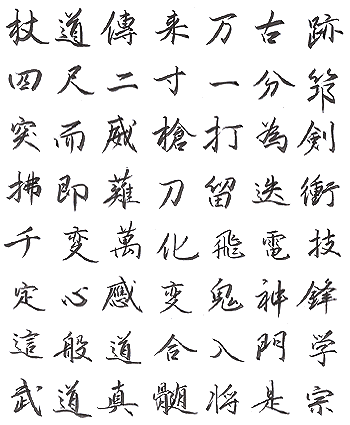 杖道傳来万古跡
四尺二寸一分筇
突而威槍打為剣
拂即薙刀留迭衝
千変萬化飛電技
定心應変鬼神鋒
這般道合入門学
武道真髄将是宗